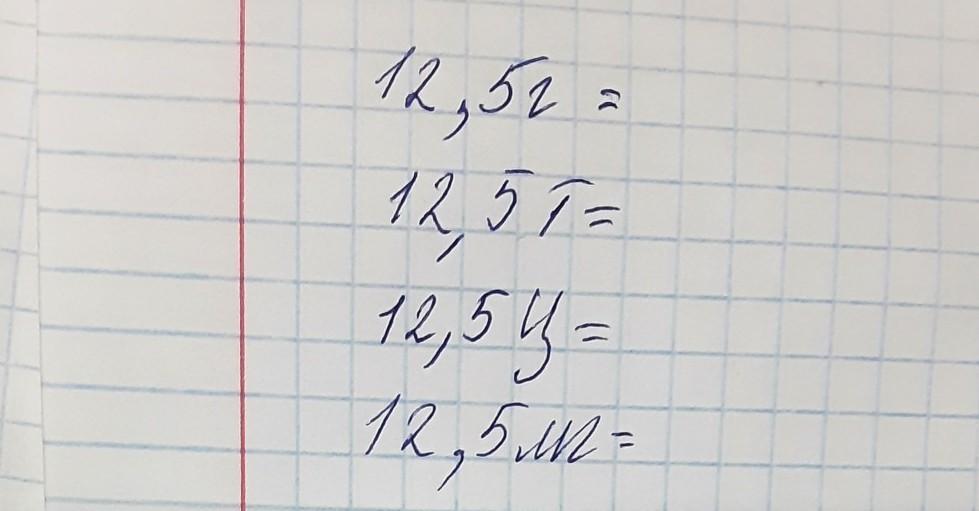 12,5г =
12,5 Т=
12,5 ц =
12,5 мг =